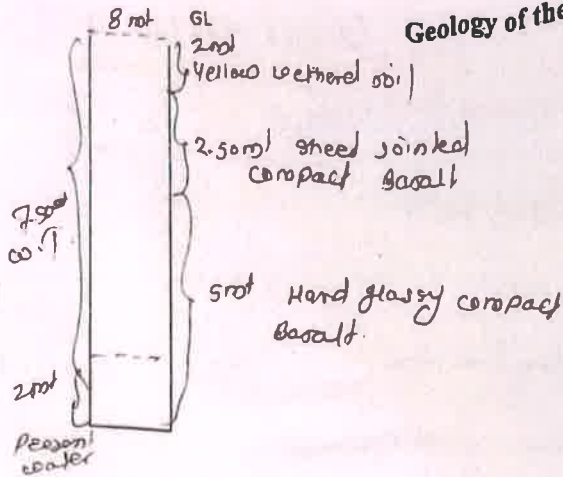 Geology of the
8 mt GL
2mt
Yellow wethered soil
2.50mt sheed jointed
compact Basalt
7.50mt
w.T
5mt Hard glassy compact
Basalt.
2mt
Pesent
water